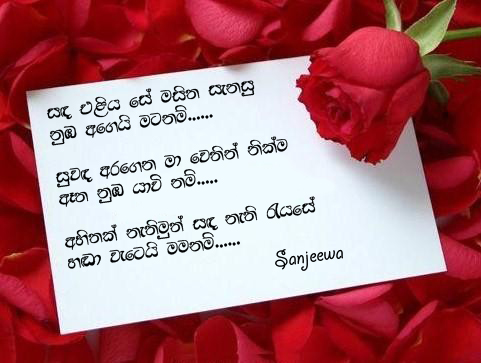 සඳ එළිය සේ මසිත සැනසු
නුඹ අගෙයි මටනම්......
සුවඳ අරගෙන මා වෙතින් නික්ම
ඈත නුඹ යාවි නම්.....
අහිතක් නැතිමුත් සඳ නැති රැයසේ
හඬා වැටෙයි මමනම්......
Sanjeewa